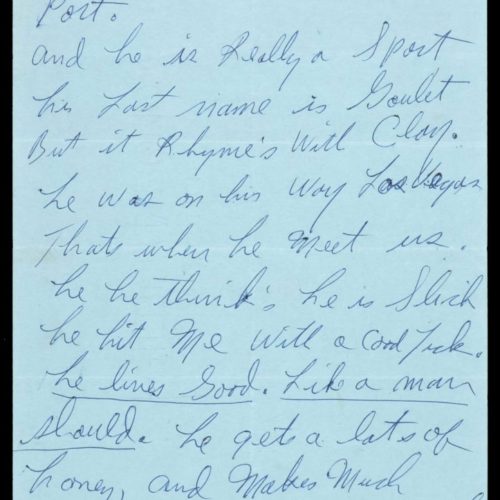 Port.
and he is Really a Sport
his Last name is Goulet
But it Rhyme's With Clay.
he was on his Way Las Vegas
Thats when he Meet us.
he he think's he is Slick
he hit Me With a Card Trick.
he lives Good. Like a man
should. he gets a lots of
honey, and Makes Much